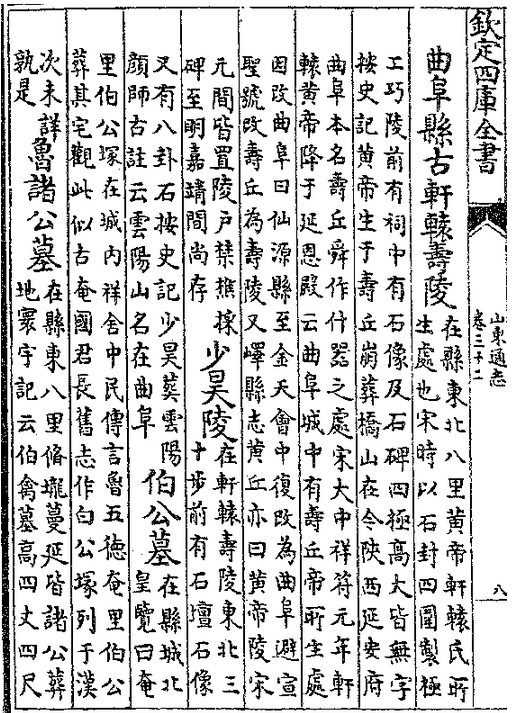 欽定四庫全書
山東通志
卷三十二
八
曲阜縣古軒轅壽陵
在縣東北八里黃帝軒轅氏所
生處也宋時以石封四圍製極
工巧陵前有祠中有石像及石碑四極高大皆無字
按史記黃帝生于壽丘崩葬橋山在今陝西延安府
曲阜本名壽丘舜作什器之處宋大中祥符元年軒
轅黃帝降于延恩殿云曲阜城中有壽丘帝所生處
因改曲阜曰仙源縣至金天會中復改為曲阜避宣
聖號改壽丘為壽陵又嶧縣志黃丘亦曰黃帝陵宋
元間皆置陵戶禁樵採
碑至明嘉靖間尚存
少昊陵
在軒轅壽陵東北三
十步前有石壇石像
又有八卦石按史記少昊葬雲陽
顔師古註云雲陽山名在曲阜
伯公墓
在縣城北
皇覽曰奄
里伯公塚在城内祥舍中民傳言魯五徳奄里伯公
葬其宅觀此似古奄國君長舊志作白公塚列于漢
次未詳
孰是
魯諸公墓
在縣東八里脩壠蔓延皆諸公葬
地寰宇記云伯禽墓高四丈四尺